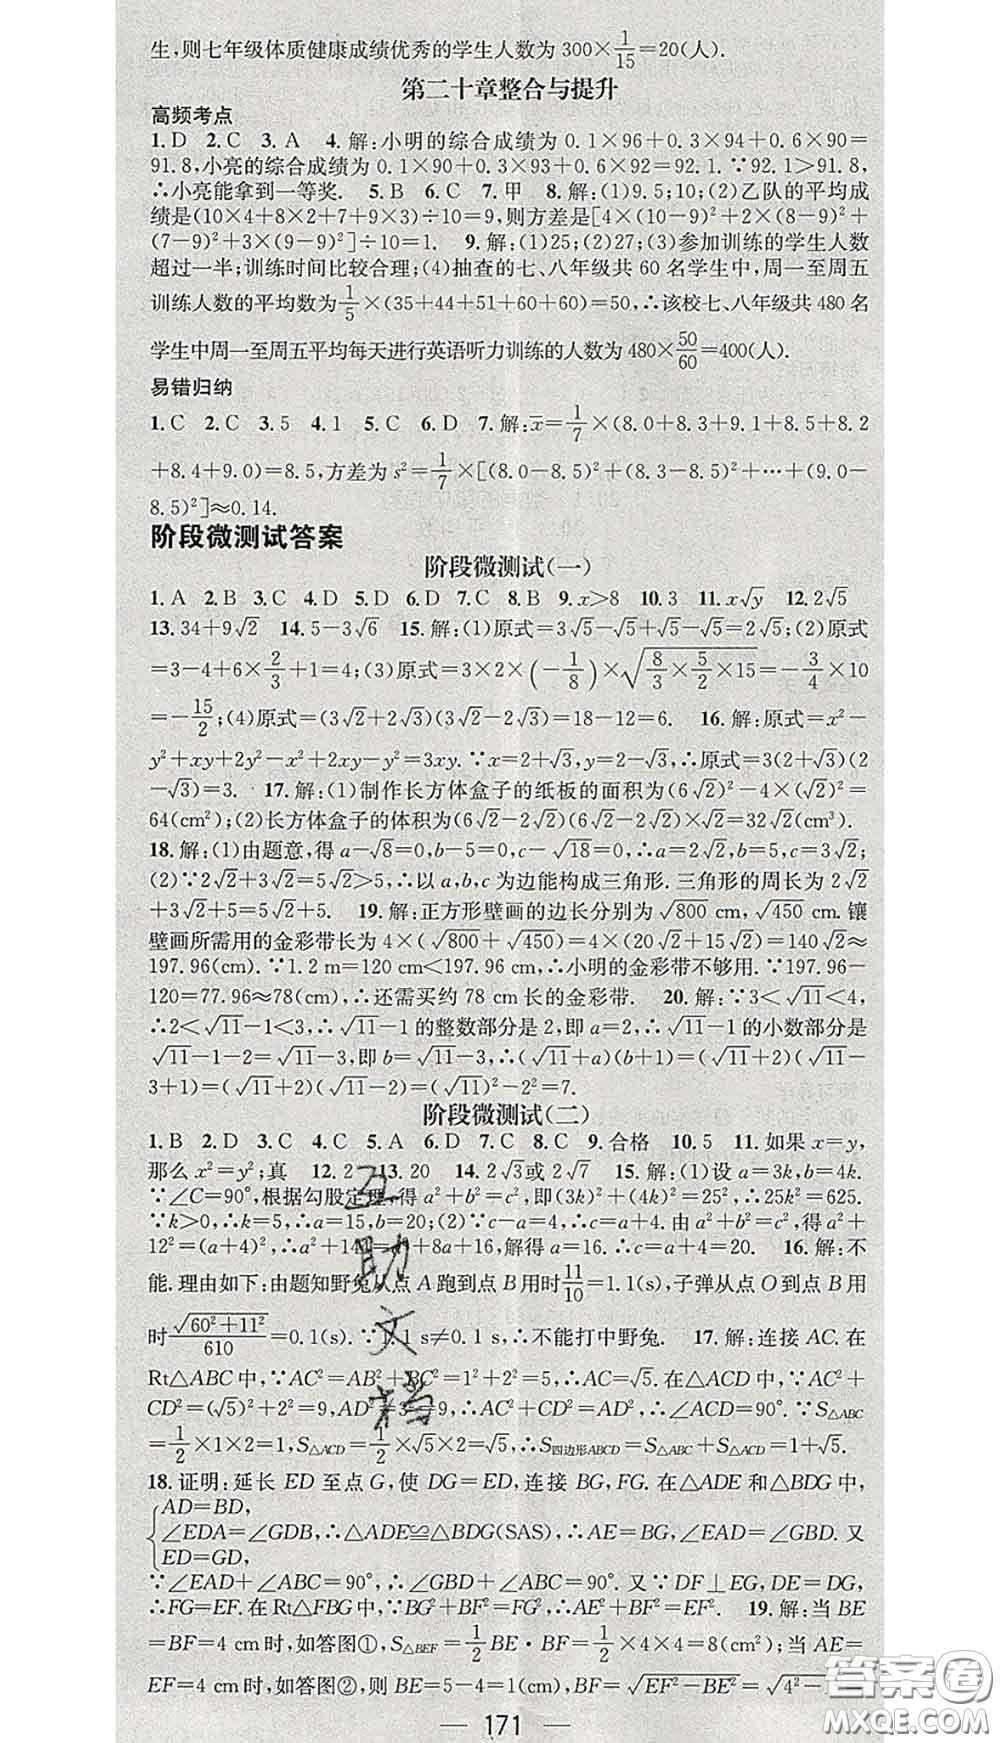 生,则七年级体质健康成绩优秀的学生人数为 300×1/15=20(人).
第二十章整合与提升
高频考点
1. D 2. C 3. A 4. 解:小明的综合成绩为 0.1×96+0.3×94+0.6×90=
91.8,小亮的综合成绩为 0.1×90+0.3×93+0.6×92=92.1.∵92.1>91.8,
∴小亮能拿到一等奖. 5. B 6. C 7. 甲 8. 解:(1)9.5;10;(2)乙队的平均成
绩是(10×4+8×2+7+9×3)÷10=9,则方差是[4×(10-9)²+2×(8-9)²+
(7-9)²+3×(9-9)²]÷10=1. 9. 解:(1)25;(2)27;(3)参加训练的学生人数
超过一半;训练时间比较合理;(4)抽查的七、八年级共 60 名学生中,周一至周五
训练人数的平均数为1/5×(35+44+51+60+60)=50,∴该校七、八年级共 480 名
学生中周一至周五平均每天进行英语听力训练的人数为 480×50/60=400(人).
易错归纳
1. C 2. C 3. 5 4. 1 5. C 6. D 7. 解:x̄=1/7×(8.0+8.3+9.1+8.5+8.2
+8.4+9.0)=8.5,方差为 s²=1/7×[(8.0-8.5)²+(8.3-8.5)²+…+(9.0-
8.5)²]≈0.14.
阶段微测试答案
阶段微测试(一)
1. A 2. B 3. C 4. D 5. D 6. D 7. C 8. B 9. x>8 10. 3 11. x√y 12. 2√5
13. 34+9√2 14. 5-3√6 15. 解:(1)原式=3√5-√5+√5-√5=2√5;(2)原式
=3-4+6×2/3+1=4;(3)原式=3×2×(-1/8)×√(8/3×5/2×15)=-3/4×10
=-15/2;(4)原式=(3√2+2√3)(3√2-2√3)=18-12=6. 16. 解:原式=x²-
y²+xy+2y²-x²+2xy-y²=3xy.∵x=2+√3,y=2-√3,∴原式=3(2+√3)(2
-√3)=3. 17. 解:(1)制作长方体盒子的纸板的面积为(6√2)²-4×(√2)²=
64(cm²);(2)长方体盒子的体积为(6√2-2√2)(6√2-2√2)×√2=32√2(cm³).
18. 解:(1)由题意,得 a-√8=0,b-5=0,c-√18=0,∴a=2√2,b=5,c=3√2;
(2)∵2√2+3√2=5√2>5,∴以 a,b,c 为边能构成三角形.三角形的周长为 2√2
+3√2+5=5√2+5. 19. 解:正方形壁画的边长分别为√800 cm,√450 cm.镶
壁画所需用的金彩带长为 4×(√800+√450)=4×(20√2+15√2)=140√2≈
197.96(cm).∵1.2 m=120 cm<197.96 cm,∴小明的金彩带不够用.∵197.96
-120=77.96≈78(cm),∴还需买约 78 cm 长的金彩带. 20. 解:∵3<√11<4,
∴2<√11-1<3,∴√11-1 的整数部分是 2,即 a=2,∴√11-1 的小数部分是
√11-1-2=√11-3,即 b=√11-3,∴(√11+a)(b+1)=(√11+2)(√11-
3+1)=(√11+2)(√11-2)=(√11)²-2²=7.
阶段微测试(二)
1. B 2. D 3. C 4. C 5. A 6. D 7. C 8. C 9. 合格 10. 5 11. 如果 x=y,
那么 x²=y²;真 12. 2 13. 20 14. 2√3或 2√7 15. 解:(1)设 a=3k,b=4k.
∵∠C=90°,根据勾股定理,得 a²+b²=c²,即(3k)²+(4k)²=25²,∴25k²=625.
∵k>0,∴k=5,∴a=15,b=20;(2)∵c-a=4,∴c=a+4.由 a²+b²=c²,得 a²+
12²=(a+4)²,∴a²+144=a²+8a+16,解得 a=16.∴c=a+4=20. 16. 解:不
能.理由如下:由题知野兔从点 A 跑到点 B 用时11/10=1.1(s),子弹从点 O 到点 B 用
时√(60²+11²)/610=0.1(s).∵1.1 s≠0.1 s,∴不能打中野兔. 17. 解:连接 AC.在
Rt△ABC 中,∵AC²=AB²+BC²=1²+2²=5,∴AC=√5.在△ACD 中,∵AC²+
CD²=(√5)²+2²=9,AD²=3²=9,∴AC²+CD²=AD²,∴∠ACD=90°.∵S△ABC
=1/2×1×2=1,S△ACD=1/2×√5×2=√5,∴S四边形ABCD=S△ABC+S△ACD=1+√5.
18. 证明:延长 ED 至点 G,使 DG=ED,连接 BG,FG.在△ADE 和△BDG 中,
{AD=BD,
∠EDA=∠GDB,∴△ADE≌△BDG(SAS),∴AE=BG,∠EAD=∠GBD.又
ED=GD,
∵∠EAD+∠ABC=90°,∴∠GBD+∠ABC=90°.又∵DF⊥EG,DE=DG,
∴FG=EF.在Rt△FBG 中,∵BG²+BF²=FG²,∴AE²+BF²=EF². 19. 解:当 BE
=BF=4 cm时,如答图①,S△BEF=1/2BE·BF=1/2×4×4=8(cm²);当 AE=
EF=4 cm时,如答图②,则 BE=5-4=1(cm),BF=√(EF²-BE²)=√(4²-
— 171 —
互
助
文
档
答案卷
MXQE.COM